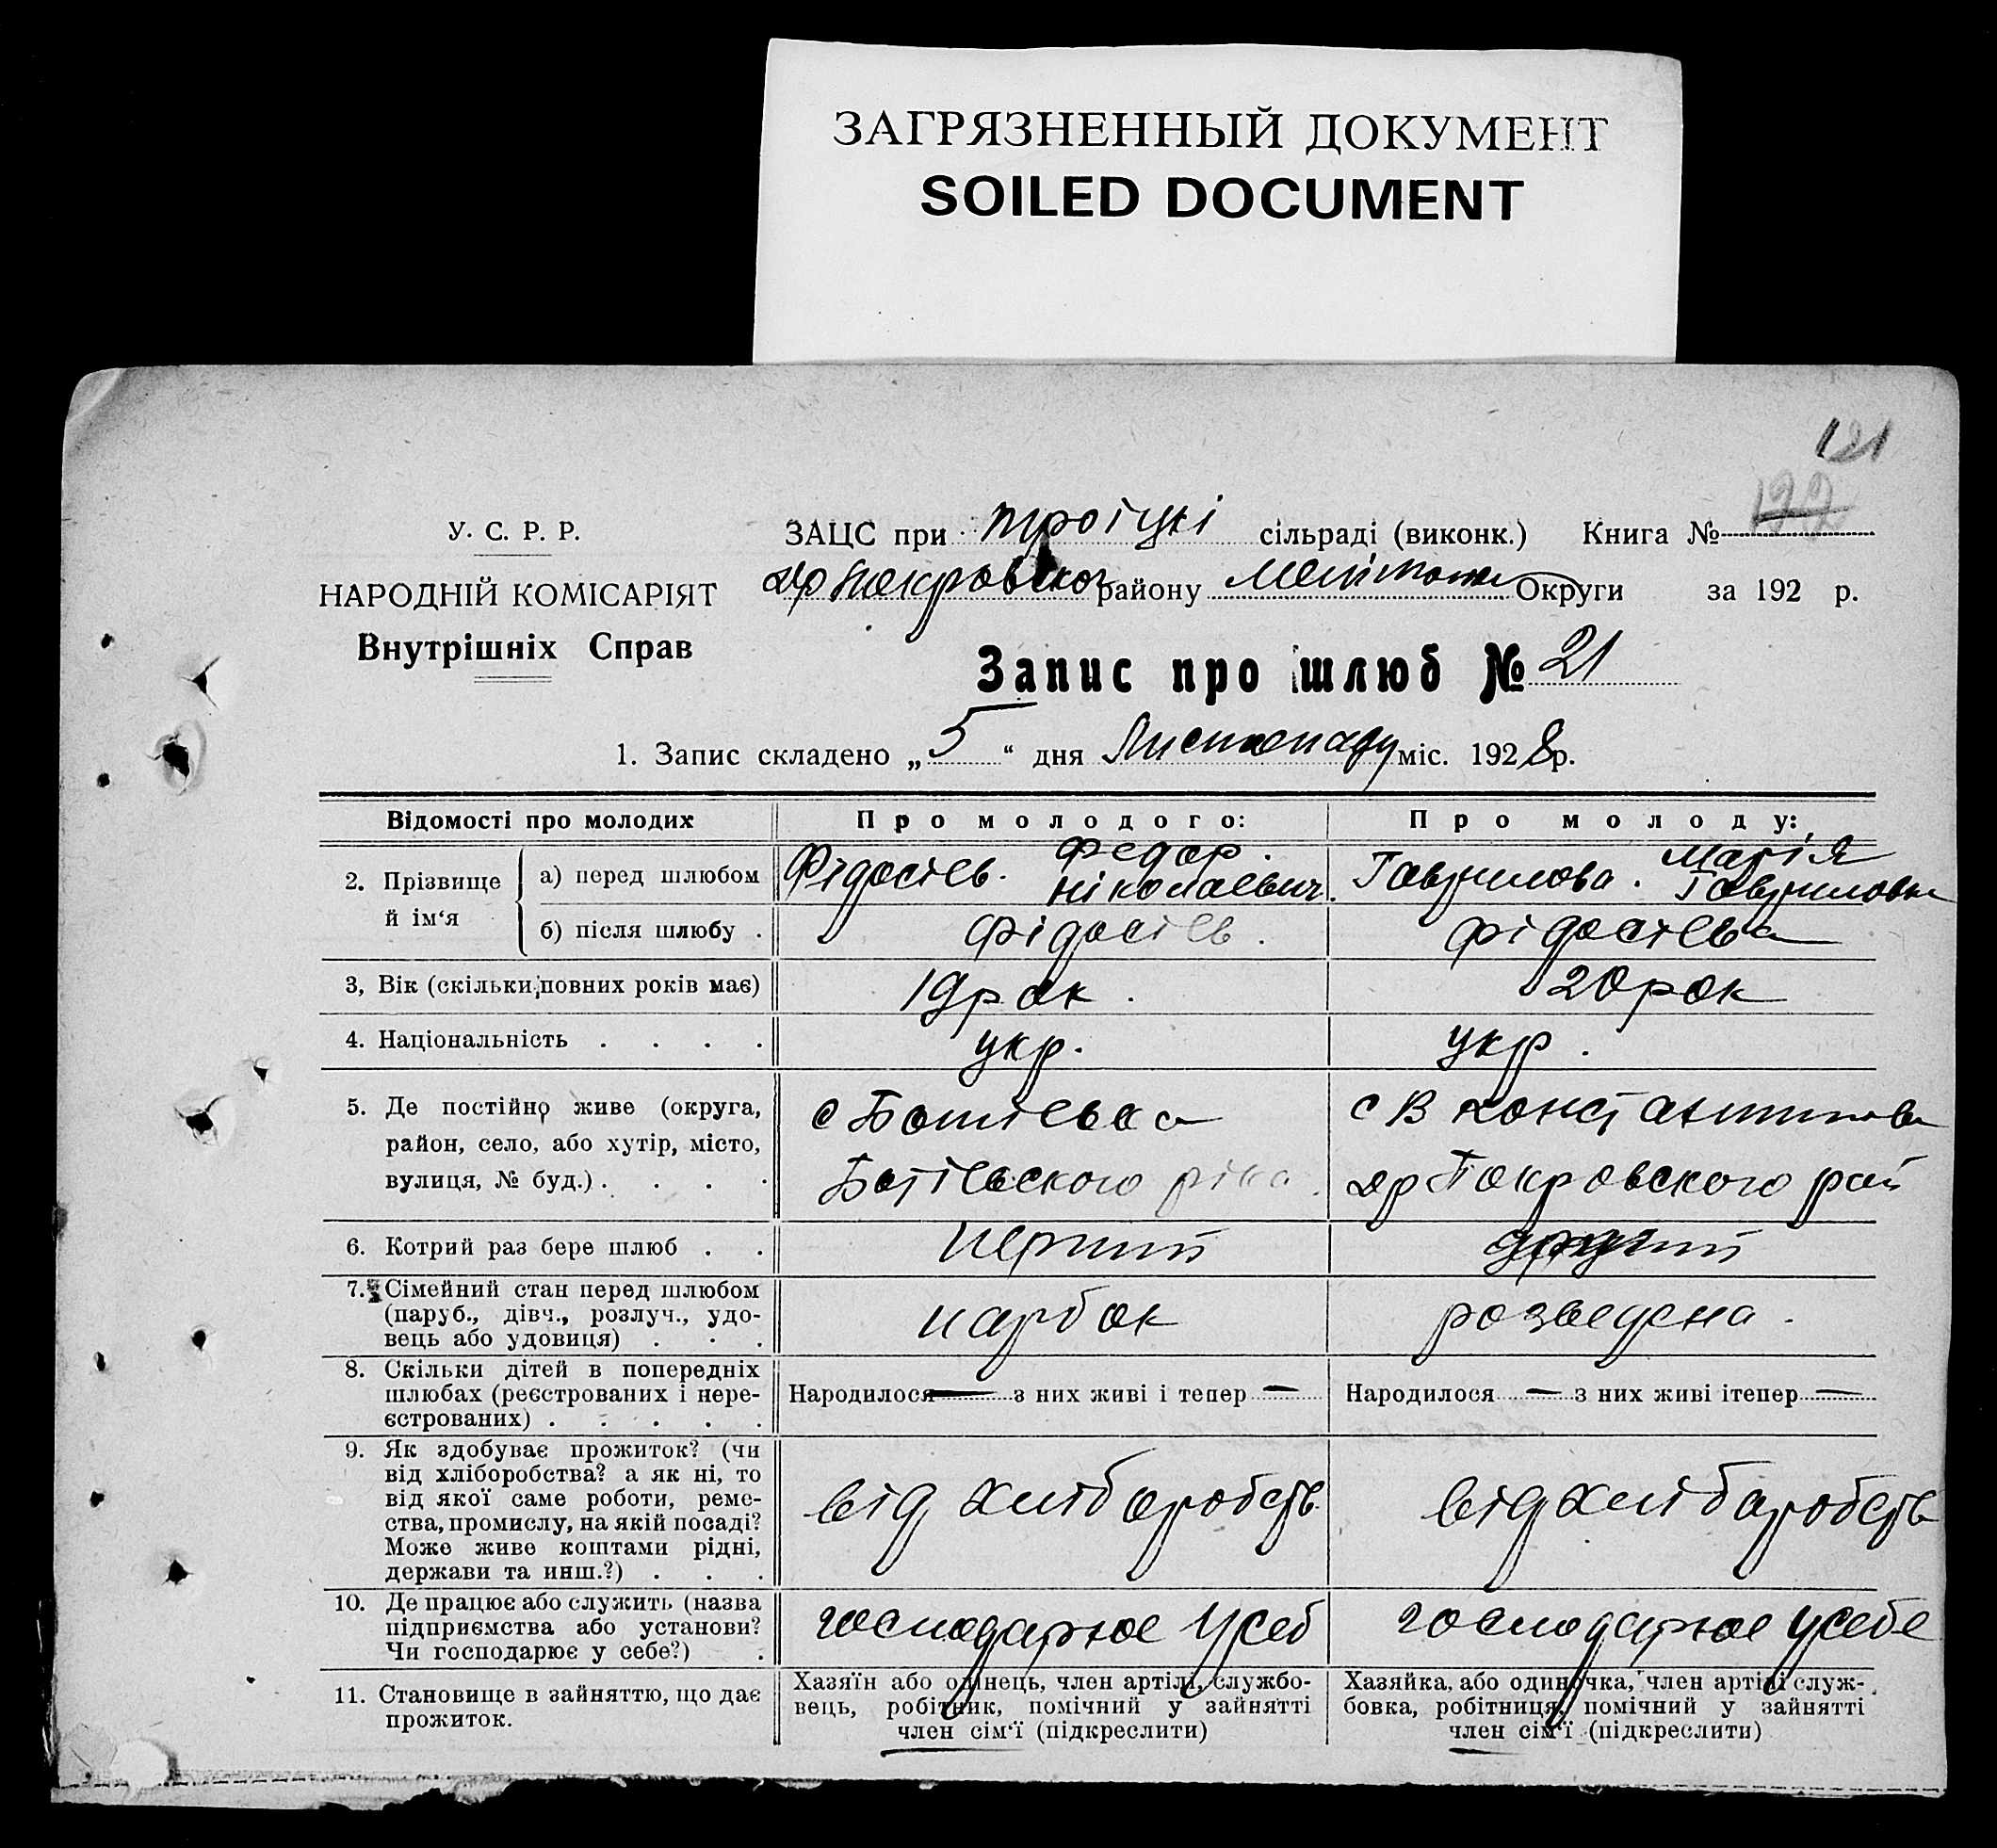 ЗАГРЯЗНЕННЫЙ ДОКУМЕНТ
SOILED DOCUMENT
121
122
У. С. Р. Р.
НАРОДНІЙ КОМІСАРІЯТ
Внутрішніх Справ
ЗАЦС при Троіцкі сільраді (виконк.) Книга №
Покровског району Округи за 192 р.
Запис про шлюб № 21
1. Запис складено „ 5 “ дня Листопаду міс. 1928 р.
Відомості про молодих
Про молодого:
Про молоду:
2. Прізвище й ім‘я
а) перед шлюбом
Фідосієв. Федор. Ніколаєвич.
Гаврилова. Марія Гавриловна
б) після шлюбу .
Фідосієв.
Фідосієва
3, Вік (скільки повних років має)
19 рок.
20 рок
4. Національність . . . .
укр.
укр.
5. Де постійно живе (округа,
район, село, або хутір, місто,
вулиця, № буд.) . . . .
с Ботієвка
Ботієвского
с В Константиновка
Покровского рай
6. Котрий раз бере шлюб . .
перший
другий
7. Сімейний стан перед шлюбом
(паруб., дівч., розлуч., удо-
вець або удовиця) . . .
парбок
розведена.
8. Скільки дітей в попередніх
шлюбах (реєстрованих і нере-
єстрованих) . . . . .
Народилося — з них живі і тепер —
Народилося — з них живі ітепер —
9. Як здобуває прожиток? (чи
від хліборобства? а як ні, то
від якої саме роботи, реме-
ства, промислу, на якій посаді?
Може живе коштами рідні,
держави та инш.?) . . .
від хліборобств
від хлібаробств
10. Де працює або служить (назва
підприємства або установи?
Чи господарює у себе?) .
господарює у себ
господарює у себе
11. Становище в зайняттю, що дає
прожиток.
Хазяїн або одинець, член артілі, службо-
вець, робітник, помічний у зайнятті
член сім‘ї (підкреслити)
Хазяйка, або одиночка, член артілі служ-
бовка, робітниця, помічний у зайнятті
член сім‘ї (підкреслити)